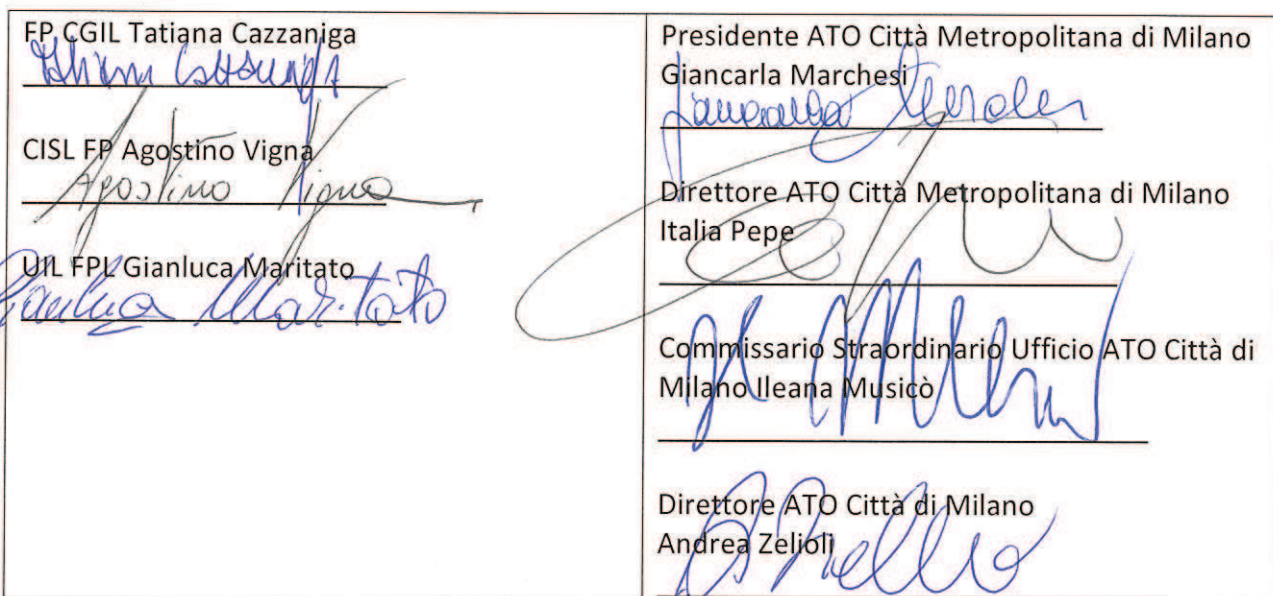 FP CGIL Tatiana Cazzaniga
CISL FP Agostino Vigna
Agostino Vigna
UIL FPL Gianluca Maritato
Gianluca Maritato
Presidente ATO Città Metropolitana di Milano
Giancarla Marchesi
Direttore ATO Città Metropolitana di Milano
Italia Pepe
Commissario Straordinario Ufficio ATO Città di
Milano Ileana Musicò
Direttore ATO Città di Milano
Andrea Zelioli